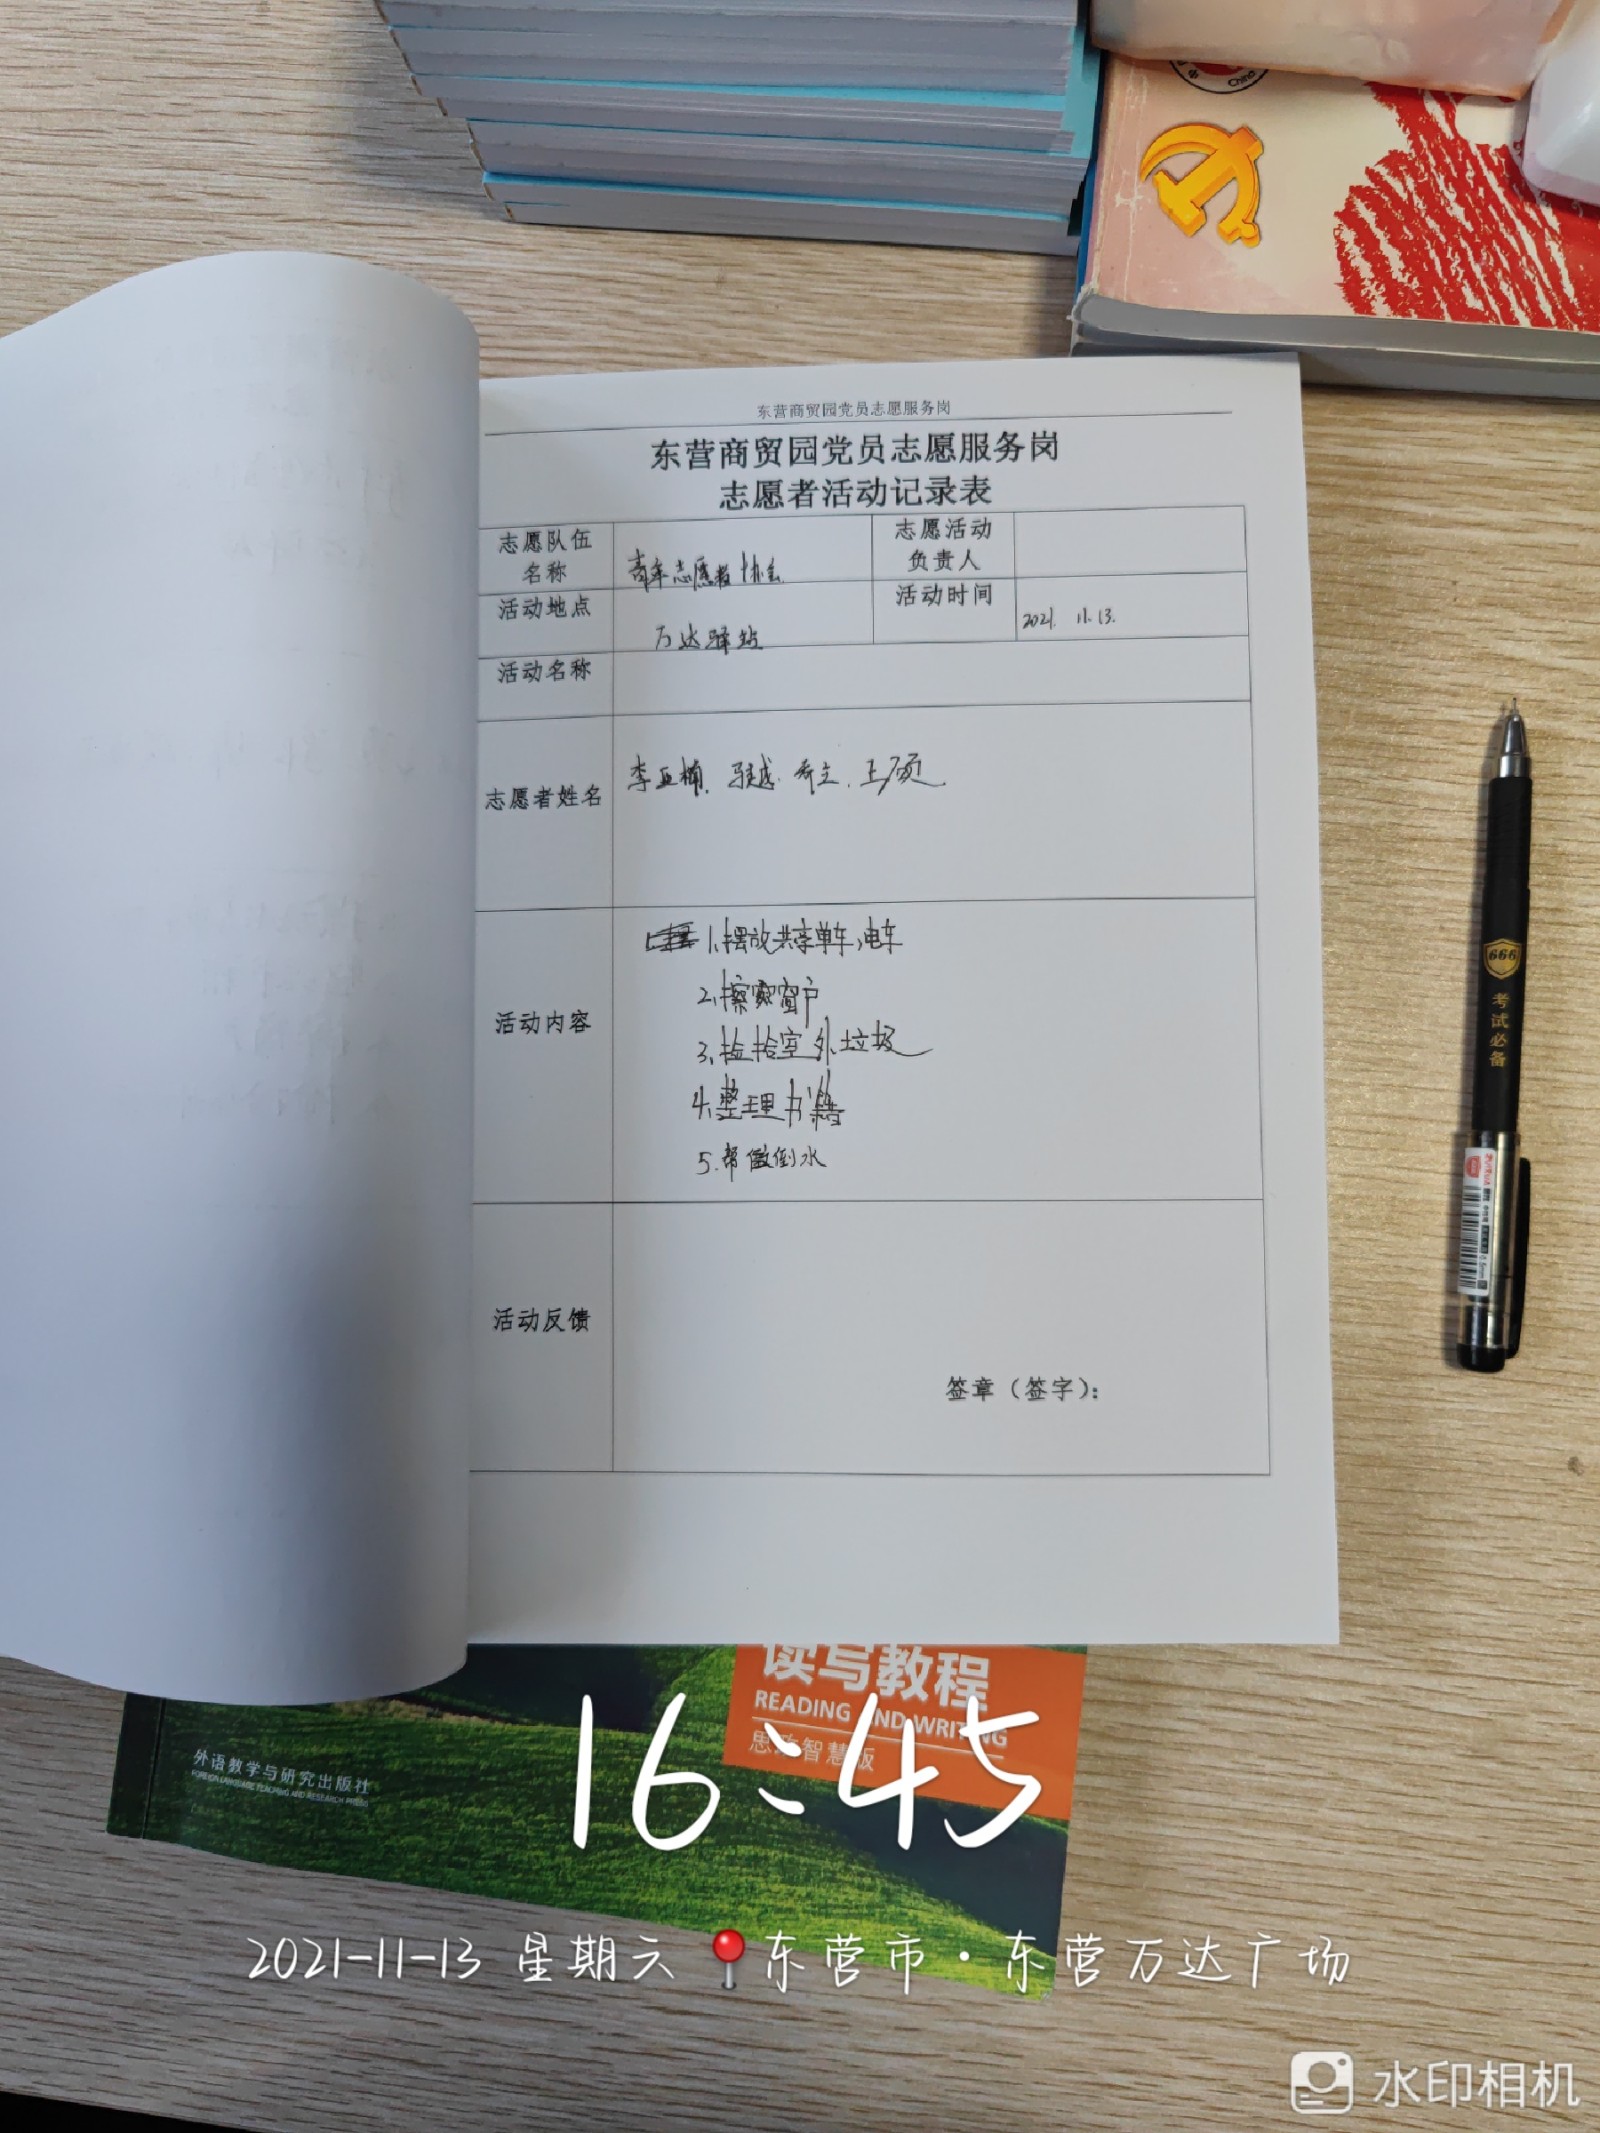 China
东营商贸园党员志愿服务岗
东营商贸园党员志愿服务岗
志愿者活动记录表
志愿队伍名称 青年志愿者协会 志愿活动负责人
活动地点 万达驿站 活动时间 2021. 11.13.
活动名称
志愿者姓名 李亚楠. 乔立. 王硕
活动内容
1、摆放共享单车、电车
2、擦窗户
3、捡拾室外垃圾
4、整理书籍
5.帮做倒水
活动反馈
签章（签字）：
666
考试必备
读写教程
READING AND WRITING
思政智慧版
外语教学与研究出版社
FOREIGN LANGUAGE TEACHING AND RESEARCH PRESS
16:45
2021-11-13 星期六 东营市·东营万达广场
水印相机